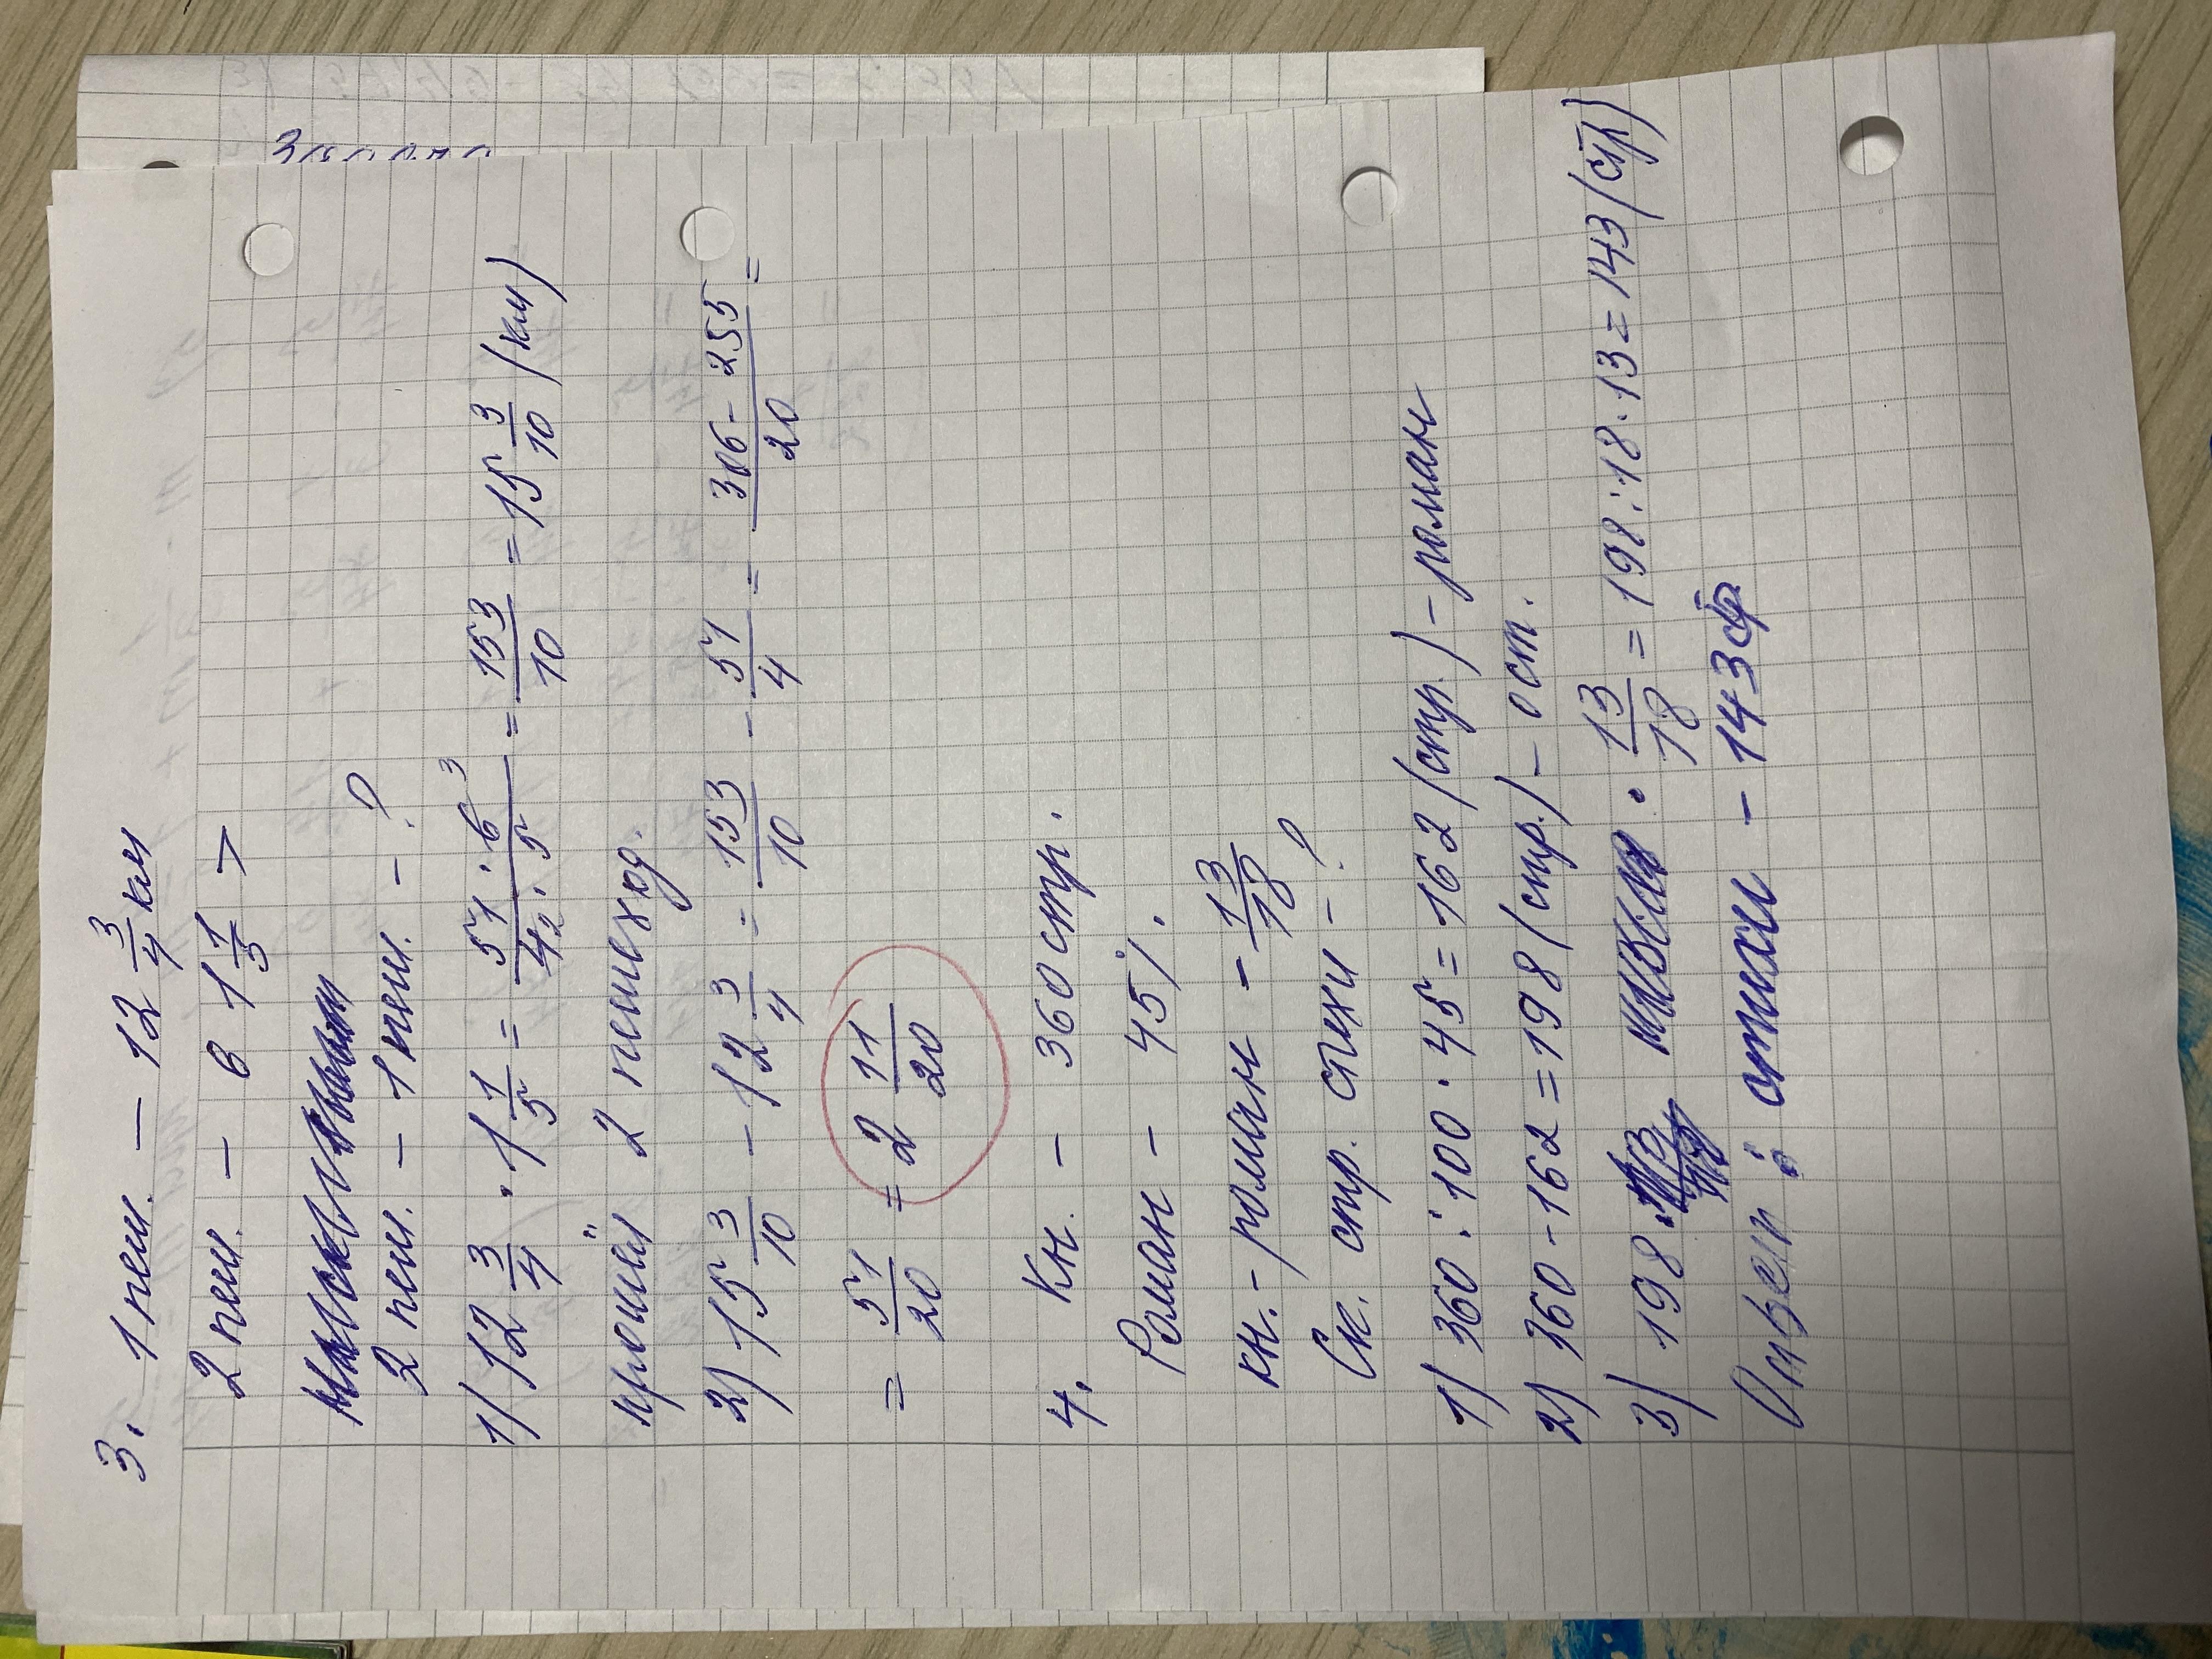 3. 1 пеш. – 12 3/4 км
2 пеш. – в 1 1/5 >
2 пеш. – 1 пеш. – ?
1) 12 3/4 · 1 1/5 = 51 · 6 3 / 4 2 · 5 = 153/10 = 15 3/10 (км)
прошёл 2 пешеход.
2) 15 3/10 – 12 3/4 = 153/10 – 51/4 = 306 – 255 / 20 =
= 51/20 = 2 11/20
4. Кн. – 360 стр.
Роман – 45%.
кн. – роман – 13/18
Ск. стр. стихи – ?
1) 360 : 100 · 45 = 162 (стр.) – роман
2) 360 – 162 = 198 (стр.) – ост.
3) 198 · 13/18 = 198 : 18 · 13 = 143 (стр)
Ответ : стихи – 143